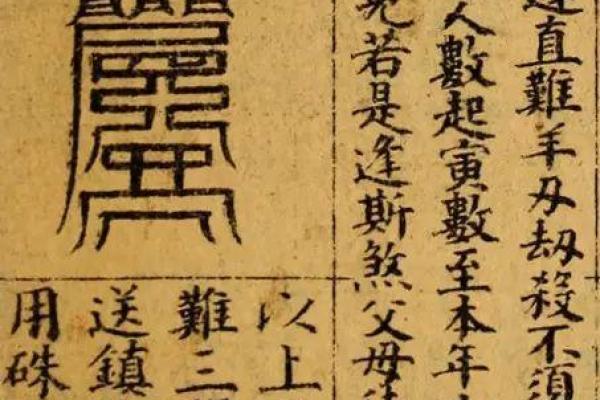 直難羊刃劫殺不須
人數起寅數至本年
若是逢斯煞父母
以上
難三
送鎮
用硃